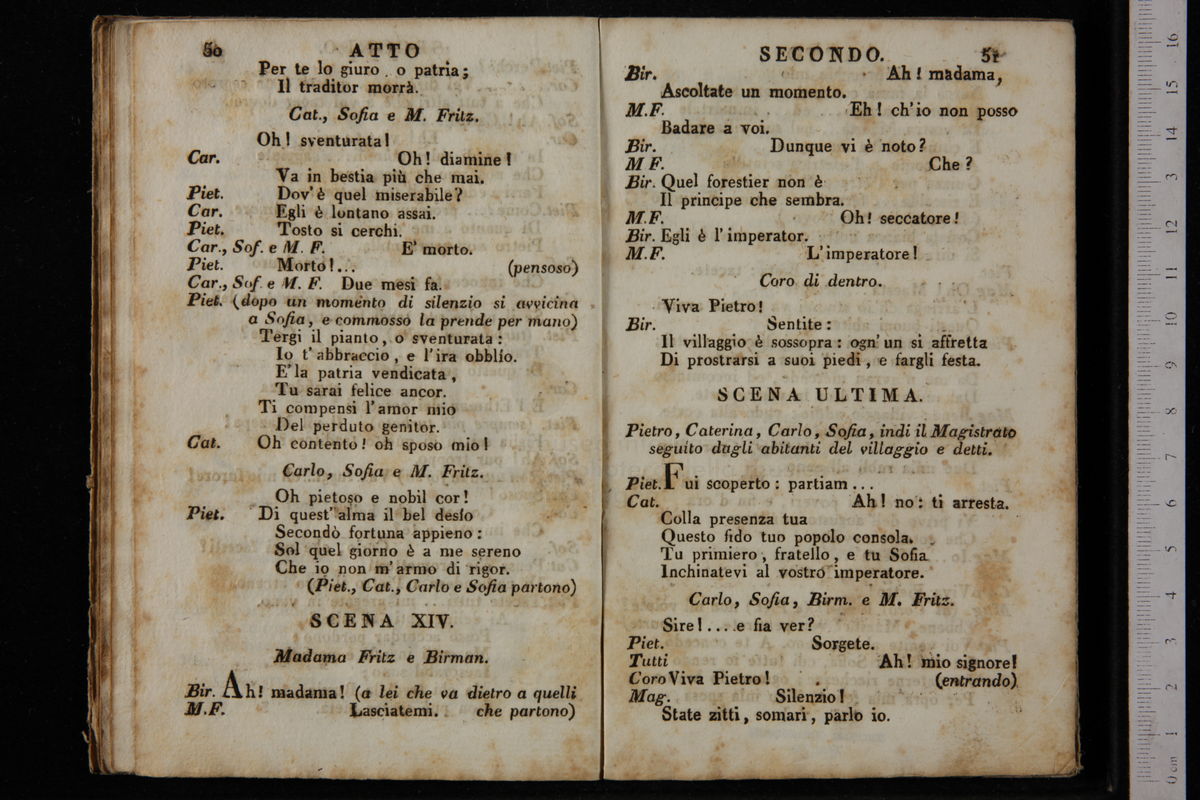 50 ATTO
Per te lo giuro, o patria;
Il traditor morrà.
Cat., Sofia e M. Fritz.
Oh! sventurata!
Car. Oh! diamine!
Va in bestia più che mai.
Piet. Dov'è quel miserabile?
Car. Egli è lontano assai.
Piet. Tosto si cerchi.
Car., Sof. e M. F. E' morto.
Piet. Morto!... (pensoso)
Car., Sof. e M. F. Due mesi fa.
Piet. (dopo un momento di silenzio si avvicina
a Sofia, e commosso la prende per mano)
Tergi il pianto, o sventurata:
Io t'abbraccio, e l'ira obblío.
E' la patria vendicata,
Tu sarai felice ancor.
Ti compensi l'amor mio
Del perduto genitor.
Cat. Oh contento! oh sposo mio!
Carlo, Sofia e M. Fritz.
Oh pietoso e nobil cor!
Piet. Di quest'alma il bel desío
Secondò fortuna appieno:
Sol quel giorno è a me sereno
Che io non m'armo di rigor.
(Piet., Cat., Carlo e Sofia partono)
SCENA XIV.
Madama Fritz e Birman.
Bir. Ah! madama! (a lei che va dietro a quelli
M.F. Lasciatemi. che partono)
SECONDO. 51
Bir. Ah! madama,
Ascoltate un momento.
M.F. Eh! ch'io non posso
Badare a voi.
Bir. Dunque vi è noto?
M F. Che?
Bir. Quel forestier non è
Il principe che sembra.
M.F. Oh! seccatore!
Bir. Egli è l'imperator.
M.F. L'imperatore!
Coro di dentro.
Viva Pietro!
Bir. Sentite:
Il villaggio è sossopra: ogn'un si affretta
Di prostrarsi a suoi piedi, e fargli festa.
SCENA ULTIMA.
Pietro, Caterina, Carlo, Sofia, indi il Magistrato
seguito dagli abitanti del villaggio e detti.
Piet. Fui scoperto: partiam...
Cat. Ah! no: ti arresta.
Colla presenza tua
Questo fido tuo popolo consola.
Tu primiero, fratello, e tu Sofia
Inchinatevi al vostro imperatore.
Carlo, Sofia, Birm. e M. Fritz.
Sire!.... e fia ver?
Piet. Sorgete.
Tutti Ah! mio signore!
Coro Viva Pietro! (entrando)
Mag. Silenzio!
State zitti, somari, parlo io.
0 cm 1 2 3 4 5 6 7 8 9 10 11 12 13 14 15 16